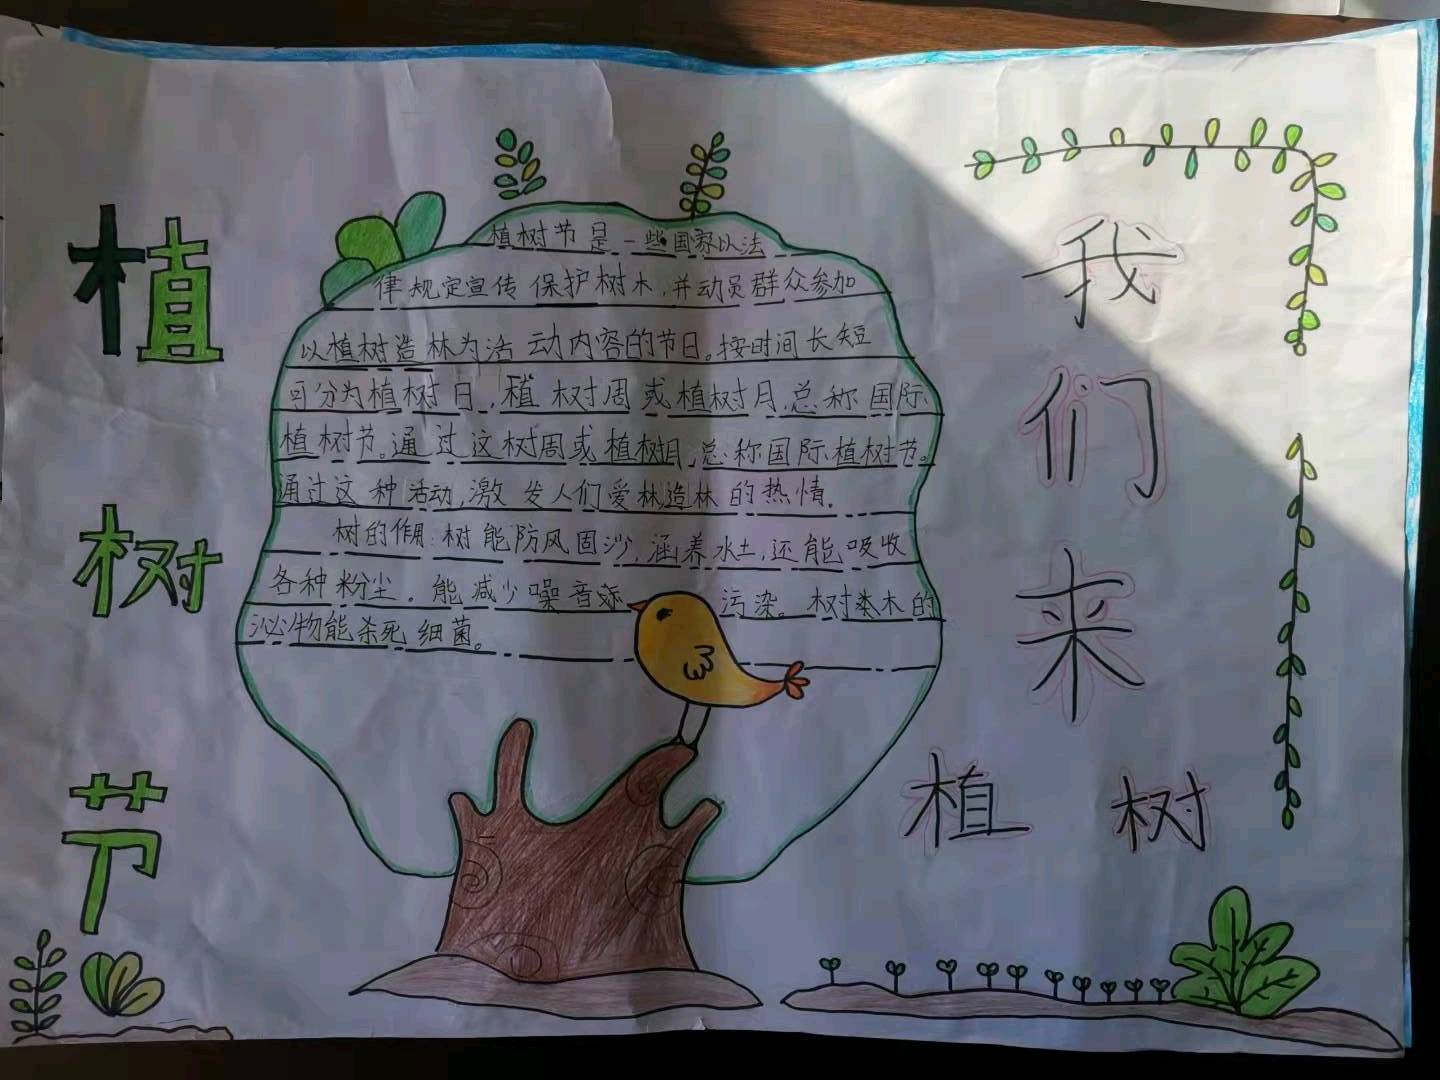 植树节
植树节是一些国家以法
律规定宣传保护树木，并动员群众参加
以植树造林为活动内容的节日。按时间长短
可分为植树日，植树周或植树月，总称国际
植树节。通过这树周或植树月，总称国际植树节。
通过这种活动，激发人们爱林造林的热情。
树的作用：树能防风固沙，涵养水土，还能吸收
各种粉尘。能减少噪音污染。树木的
泌物能杀死细菌。
我们来
植树